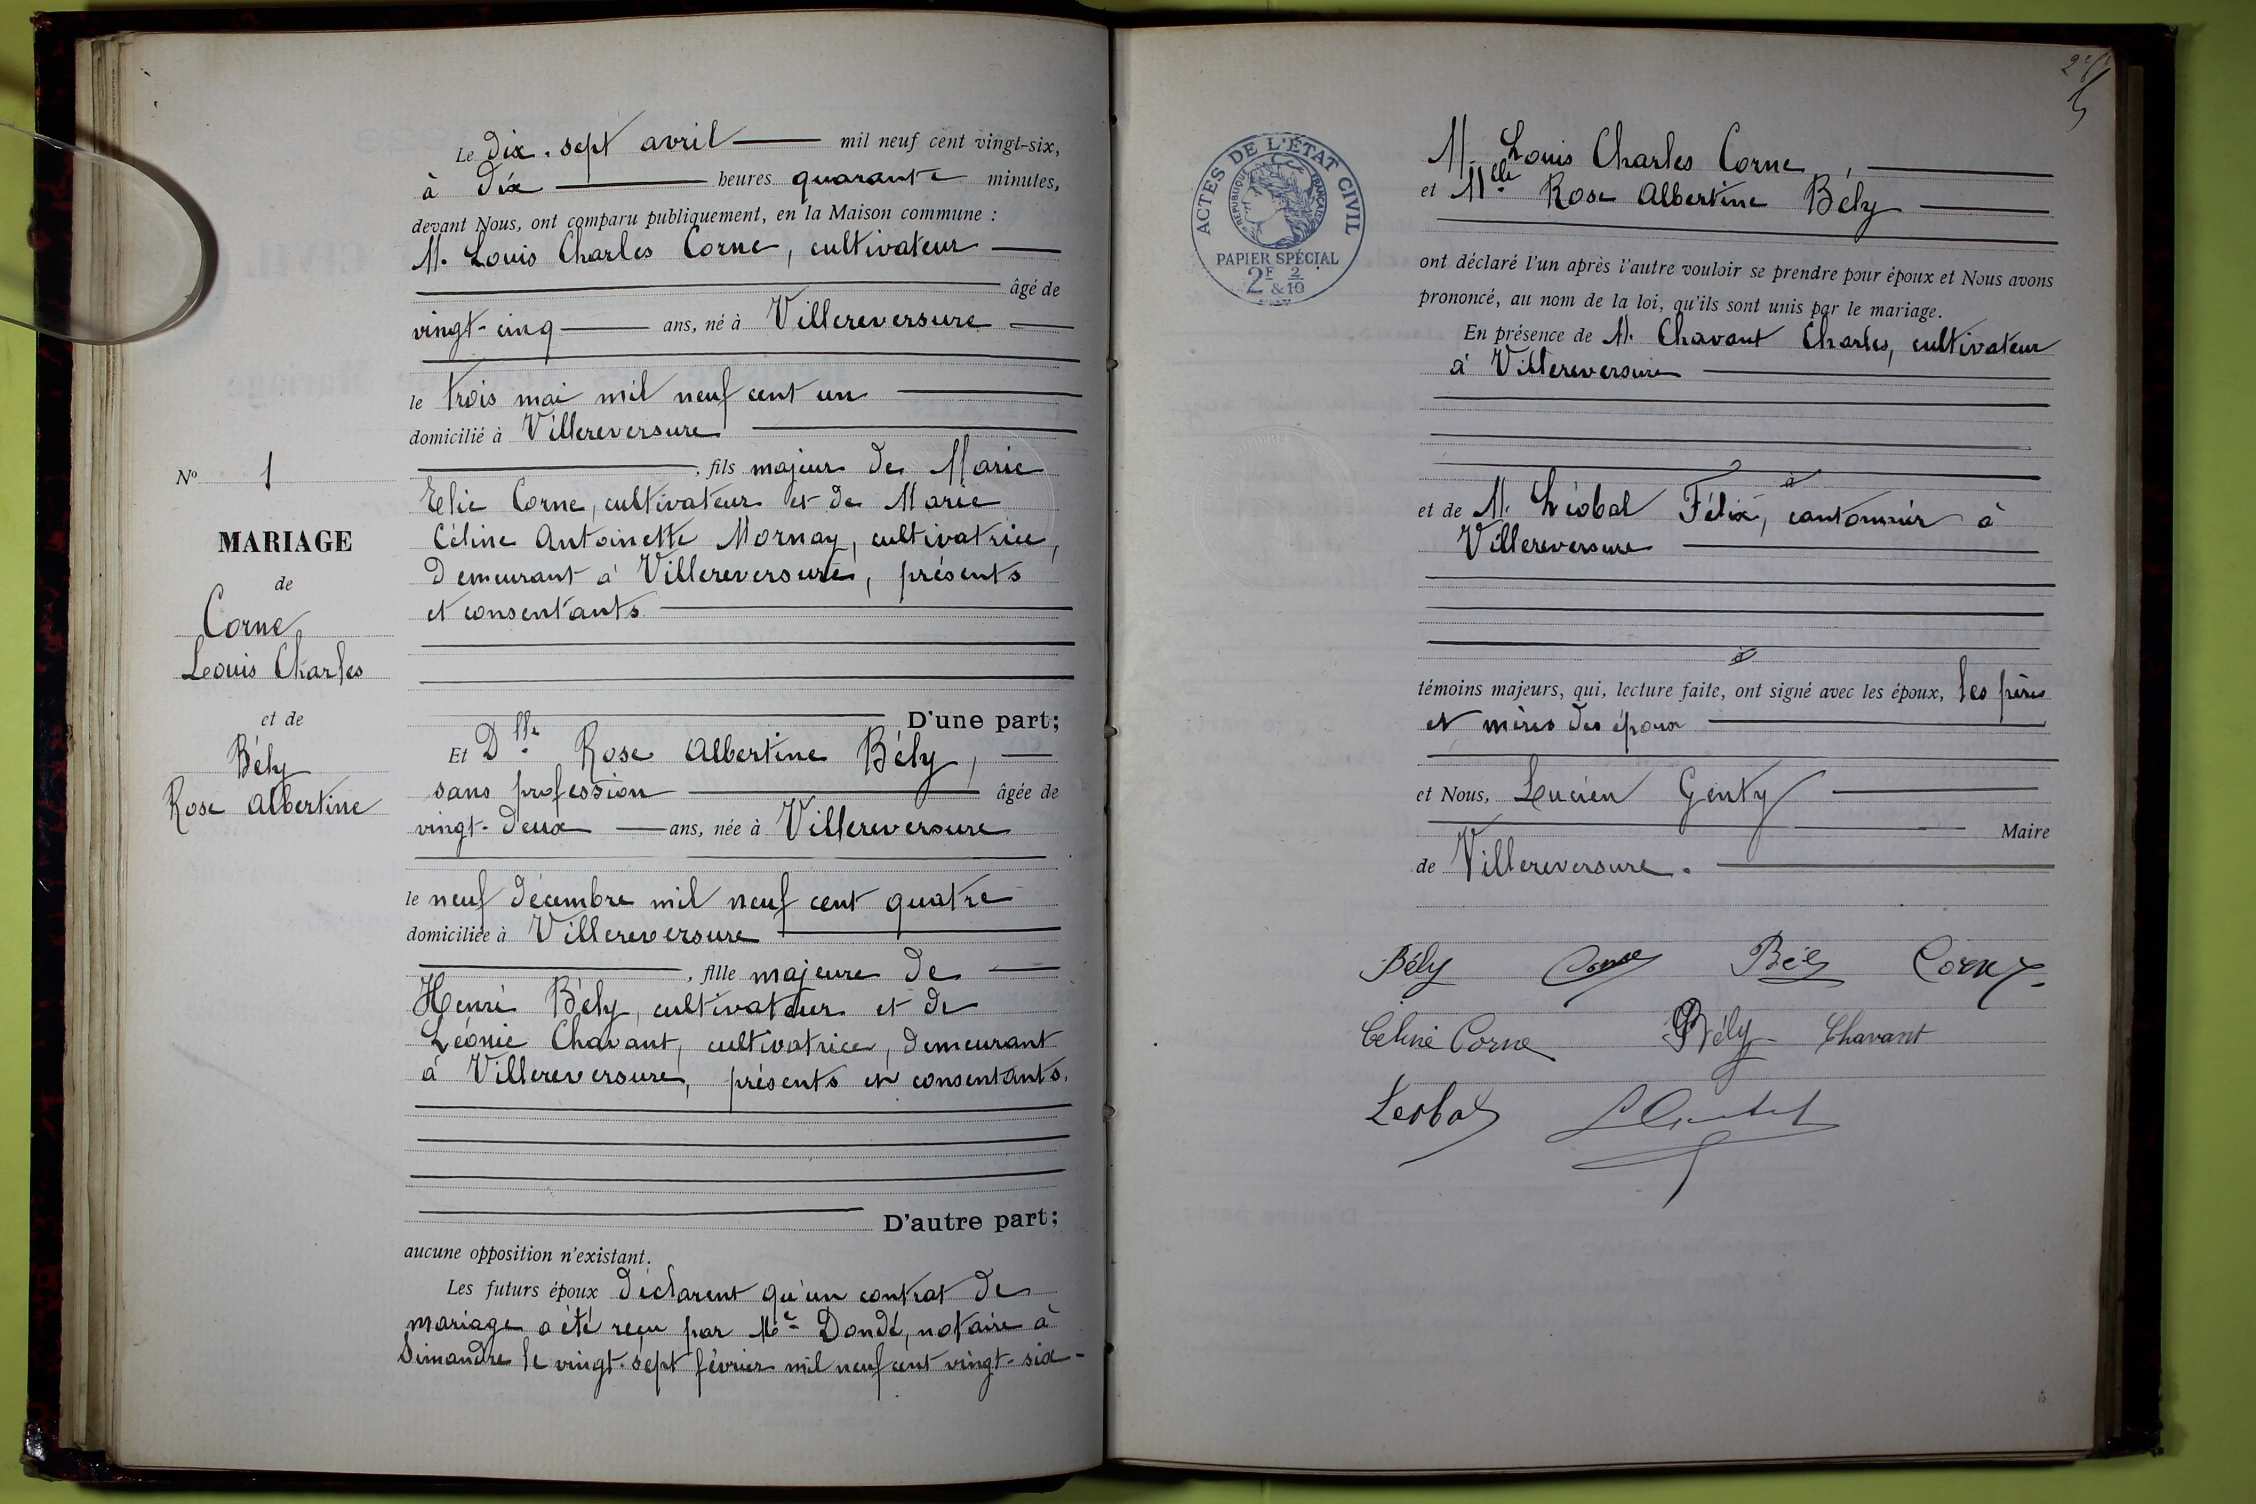 Le dix-sept avril mil neuf cent vingt-six,
à dix heures quarante minutes,
devant Nous, ont comparu publiquement, en la Maison commune :
M. Louis Charles Corne, cultivateur
âgé de
vingt-cinq ans, né à Villereversure
le trois mai mil neuf cent un
domicilié à Villereversure
, fils majeur de Marie
Elie Corne, cultivateur et de Marie
Céline Antoinette Mornay, cultivatrice,
demeurant à Villereversure, présents
et consentants
D'une part;
Et Dlle Rose Albertine Bély,
sans profession âgée de
vingt-deux ans, née à Villereversure
le neuf décembre mil neuf cent quatre
domiciliée à Villereversure
, fille majeure de
Henri Bély, cultivateur et de
Léonie Chavant, cultivatrice, demeurant
à Villereversure, présents et consentants.
D'autre part;
aucune opposition n'existant.
Les futurs époux déclarent qu'un contrat de
mariage a été reçu par Me Dondé, notaire à
Simandre le vingt-sept février mil neuf cent vingt-six-
No 1
MARIAGE
de
Corne
Louis Charles
et de
Bély
Rose Albertine
ACTES DE L'ÉTAT CIVIL
RÉPUBLIQUE FRANÇAISE
PAPIER SPÉCIAL
2F & 2/10
M. Louis Charles Corne,
et Melle Rose Albertine Bély
ont déclaré l'un après l'autre vouloir se prendre pour époux et Nous avons
prononcé, au nom de la loi, qu'ils sont unis par le mariage.
En présence de M. Chavant Charles, cultivateur
à Villereversure
et de M. Léobal Félix, cantonnier à
Villereversure
témoins majeurs, qui, lecture faite, ont signé avec les époux, les pères
et mères des époux
et Nous, Lucien Genty
Maire
de Villereversure.
Bély Corne Bély Corne
Céline Corne Bély Chavant
Leobal